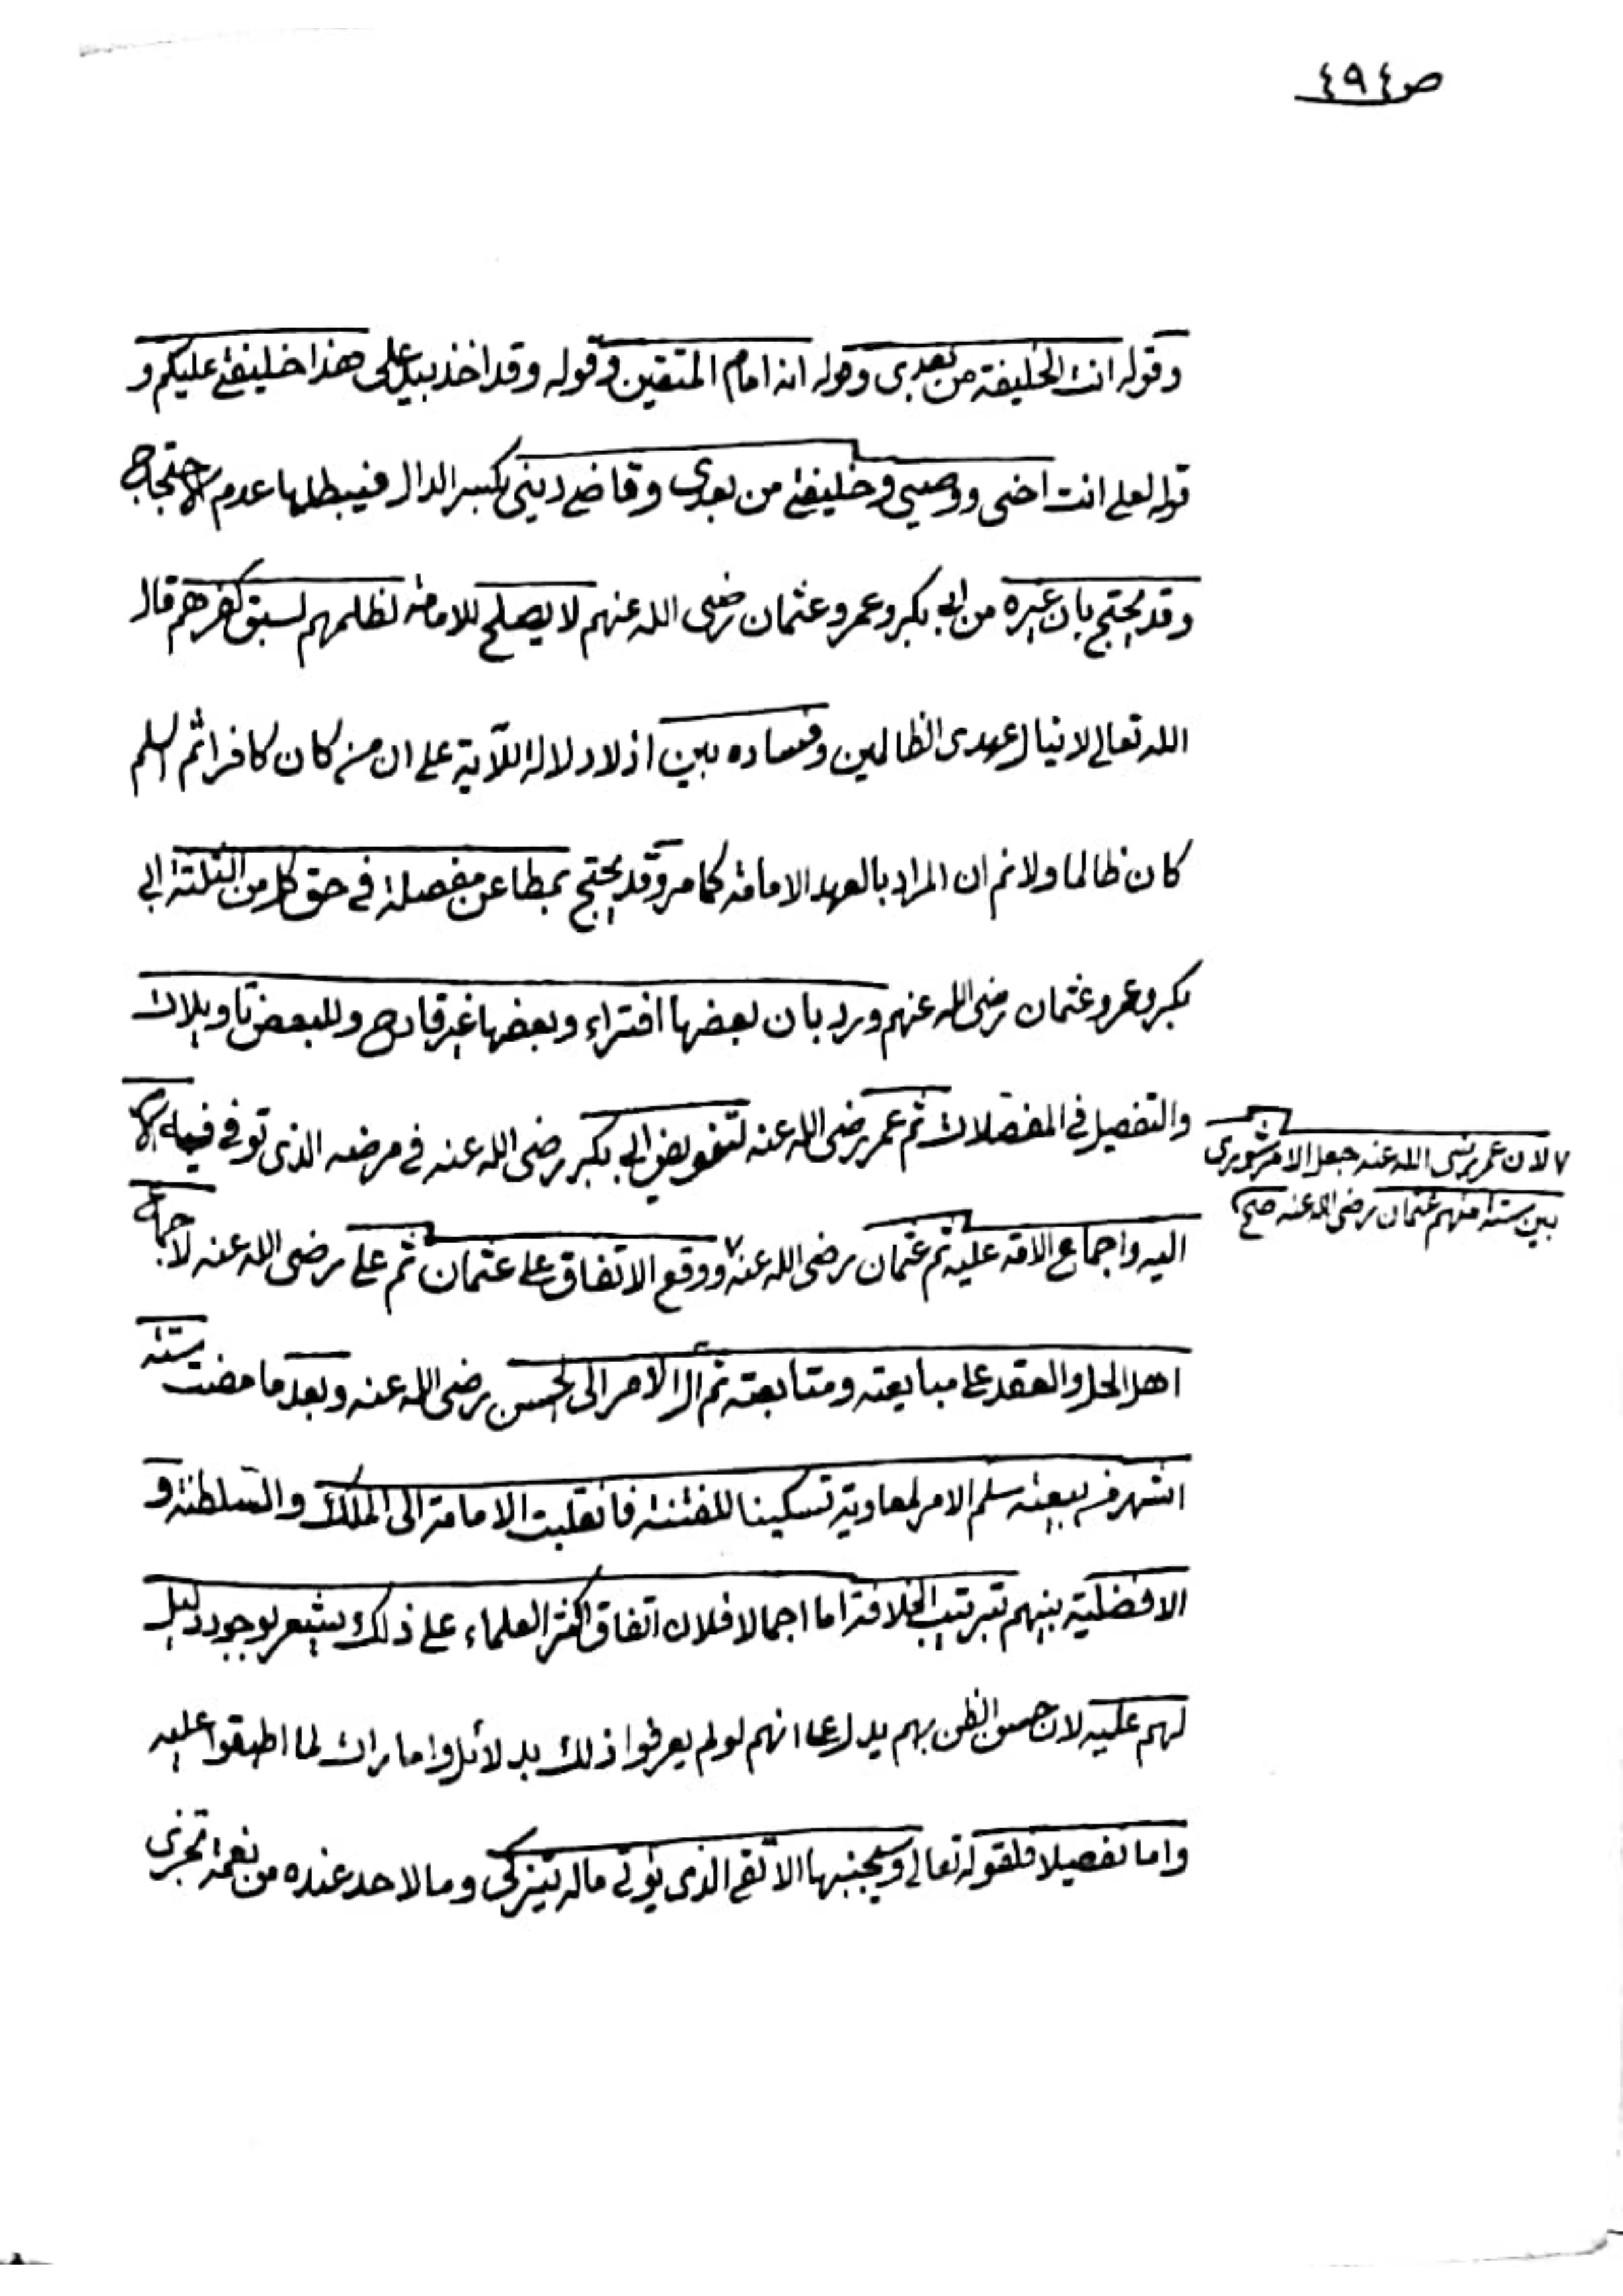 ص ٤٩٤
وقوله انت الخليفة من بعدى وقوله انه امام المتقين وقوله وقد اخذ بيد على هذا خليفتى عليكم و
قوله لعلى انت اخى ووصيى وخليفتى من بعدى وقاضى دينى بكسر الدال فيبطلها عدم الاحتجاج
وقد يحتج بان غيره من ابى بكر وعمر وعثمان رضى الله عنهم لا يصلح للامامة لظلمهم لسبق كفرهم قال
الله تعالى لا ينال عهدى الظالمين وفساده بين اذ لا دلالة للآية على ان من كان كافرا ثم اسلم
كان ظالما ولا نم ان المراد بالعهد الامامة كما مر وقد يحتج بمطاعن مفصلة فى حق كل من الثلثة ابى
بكر وعمر وعثمان رضى الله عنهم ورد بان بعضها افتراء وبعضها غير قادح وللبعض تاويلات
والتفصيل فى المفصلات ثم عمر رضى الله عنه لتفويض ابى بكر رضى الله عنه فى مرضه الذى توفى فيه الامر
اليه واجماع الامة عليه ثم عثمان رضى الله عنه ٧ ووقع الاتفاق على عثمان ثم على رضى الله عنه لاجماع
٧ لان عمر رضى الله عنه جعل الامر شورى
بين ستة منهم عثمان رضى الله عنه صح
اهل الحل والعقد على مبايعته ومتابعته ثم آل الامر الى الحسن رضى الله عنه وبعد ما مضت ستة
اشهر من بيعته سلم الامر لمعاوية تسكينا للفتنة فانقلبت الامامة الى الملك والسلطنة و
الافضلية بينهم بترتيب الخلافة اما اجمالا فلان اتفاق اكثر العلماء على ذلك يشعر بوجود دليل
لهم عليه لان حسن الظن بهم يدل على انهم لو لم يعرفوا ذلك بدلائل وامارات لما اطبقوا عليه
واما تفصيلا فلقوله تعالى وسيجنبها الاتقى الذى يؤتى ماله يتزكى وما لاحد عنده من نعمة تجزى